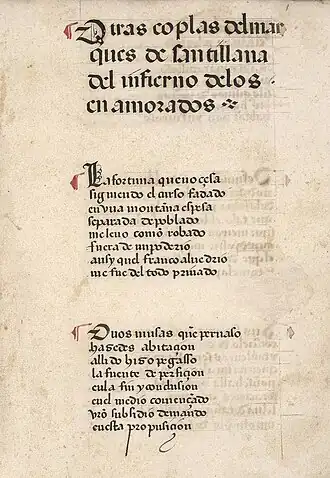 Otras coplas del mar
ques de santillana
del infierno delos
en amorados
La fortuna que no çesa
siguiendo el curso fadado
en vna montaña espesa
separada de poblado
me leuo como robado
fuera de mi poderio
ansy quel franco aluedrio
me fue del todo priuado
O vos musas que pernaso
hazedes abitaçon
alli do hizo pegasso
la fuente de perfiçion
en la fin y conclusion
en el medio començado
vro subsidio demando
en esta proposiçion